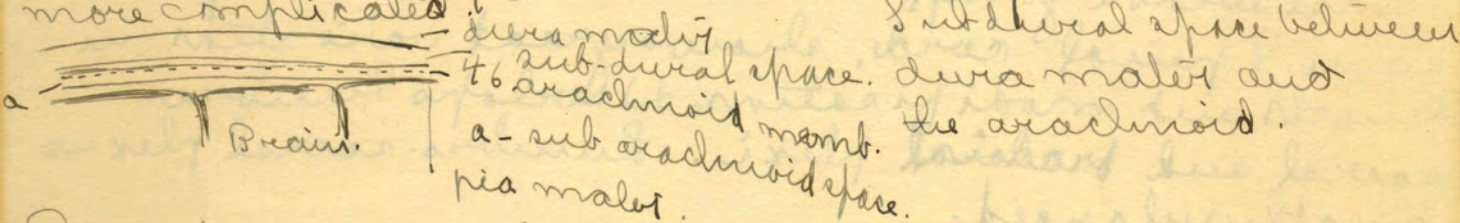 more complicated.
dura mater
sub-dural space.
arachnoid memb.
a - sub arachnoid space.
pia mater.
a
Brain.
Subdural space between
dura mater and
the arachnoid.